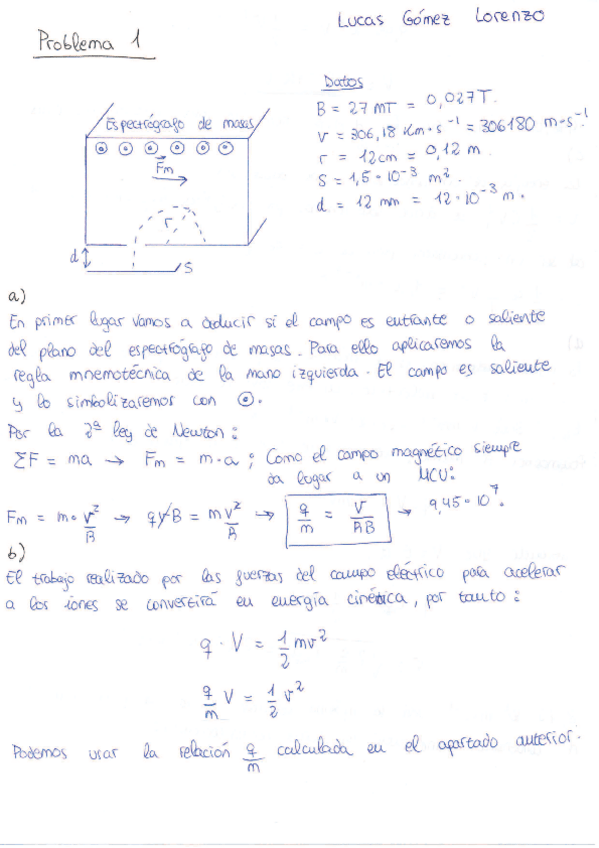 Lucas Gómez Lorenzo
Problema 1
Datos
B = 27 mT = 0,027 T.
V = 306,18 Km·s⁻¹ = 306180 m·s⁻¹
r = 12cm = 0,12 m.
S = 1,5·10⁻³ m².
d = 12 mm = 12·10⁻³ m.
Espectrógrafo de masas
Fm
r
d
S
a)
En primer lugar vamos a deducir si el campo es entrante o saliente
del plano del espectrógrafo de masas. Para ello aplicaremos la
regla mnemotécnica de la mano izquierda. El campo es saliente
y lo simbolizaremos con ⊙.
Por la 2ª ley de Newton:
ΣF = ma → Fm = m·a ; Como el campo magnético siempre
da lugar a un MCU:
Fm = m·v²/R → qvB = m v²/R → q/m = V/RB → 9,45·10⁷.
b)
El trabajo realizado por las fuerzas del campo eléctrico para acelerar
a los iones se convertirá en energía cinética, por tanto:
q · V = 1/2 mv²
q/m V = 1/2 v²
Podemos usar la relación q/m calculada en el apartado anterior.